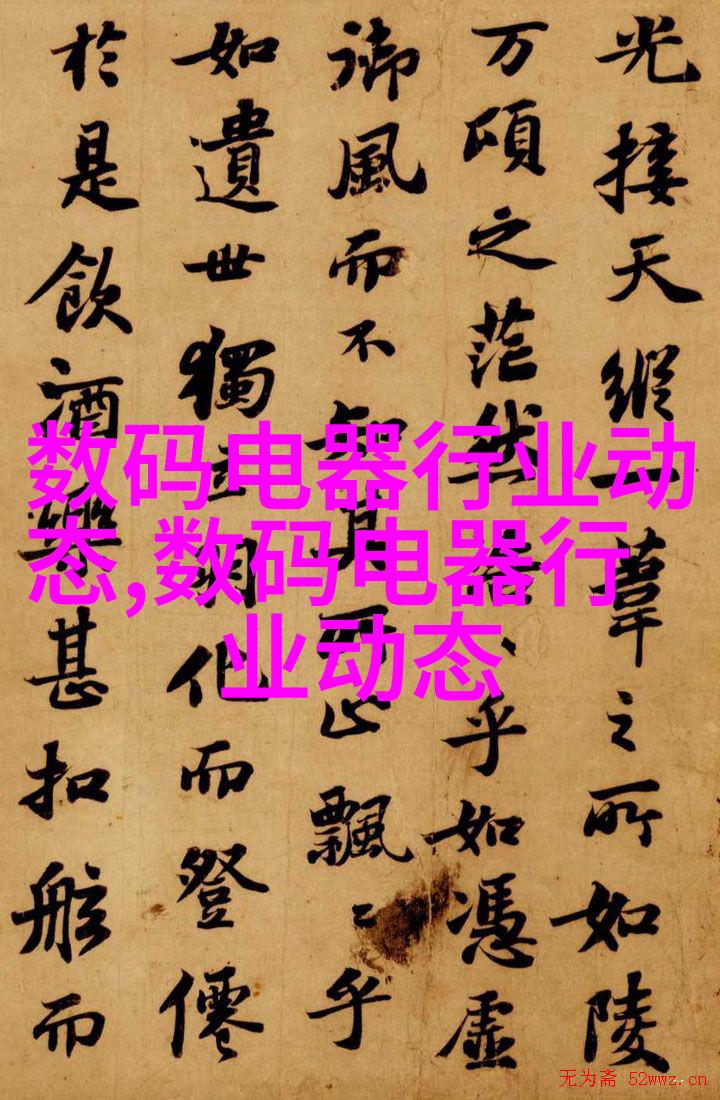 光接天縱一葦之所如陵
万頃之茫然浩〻乎如憑虛
御風而不知其所止飄〻乎
如遺世獨立羽化而登僊
於是飲酒樂甚扣舷而
数码电器行业动
态,数码电器行
业动态
无为斋 52wwz.cn